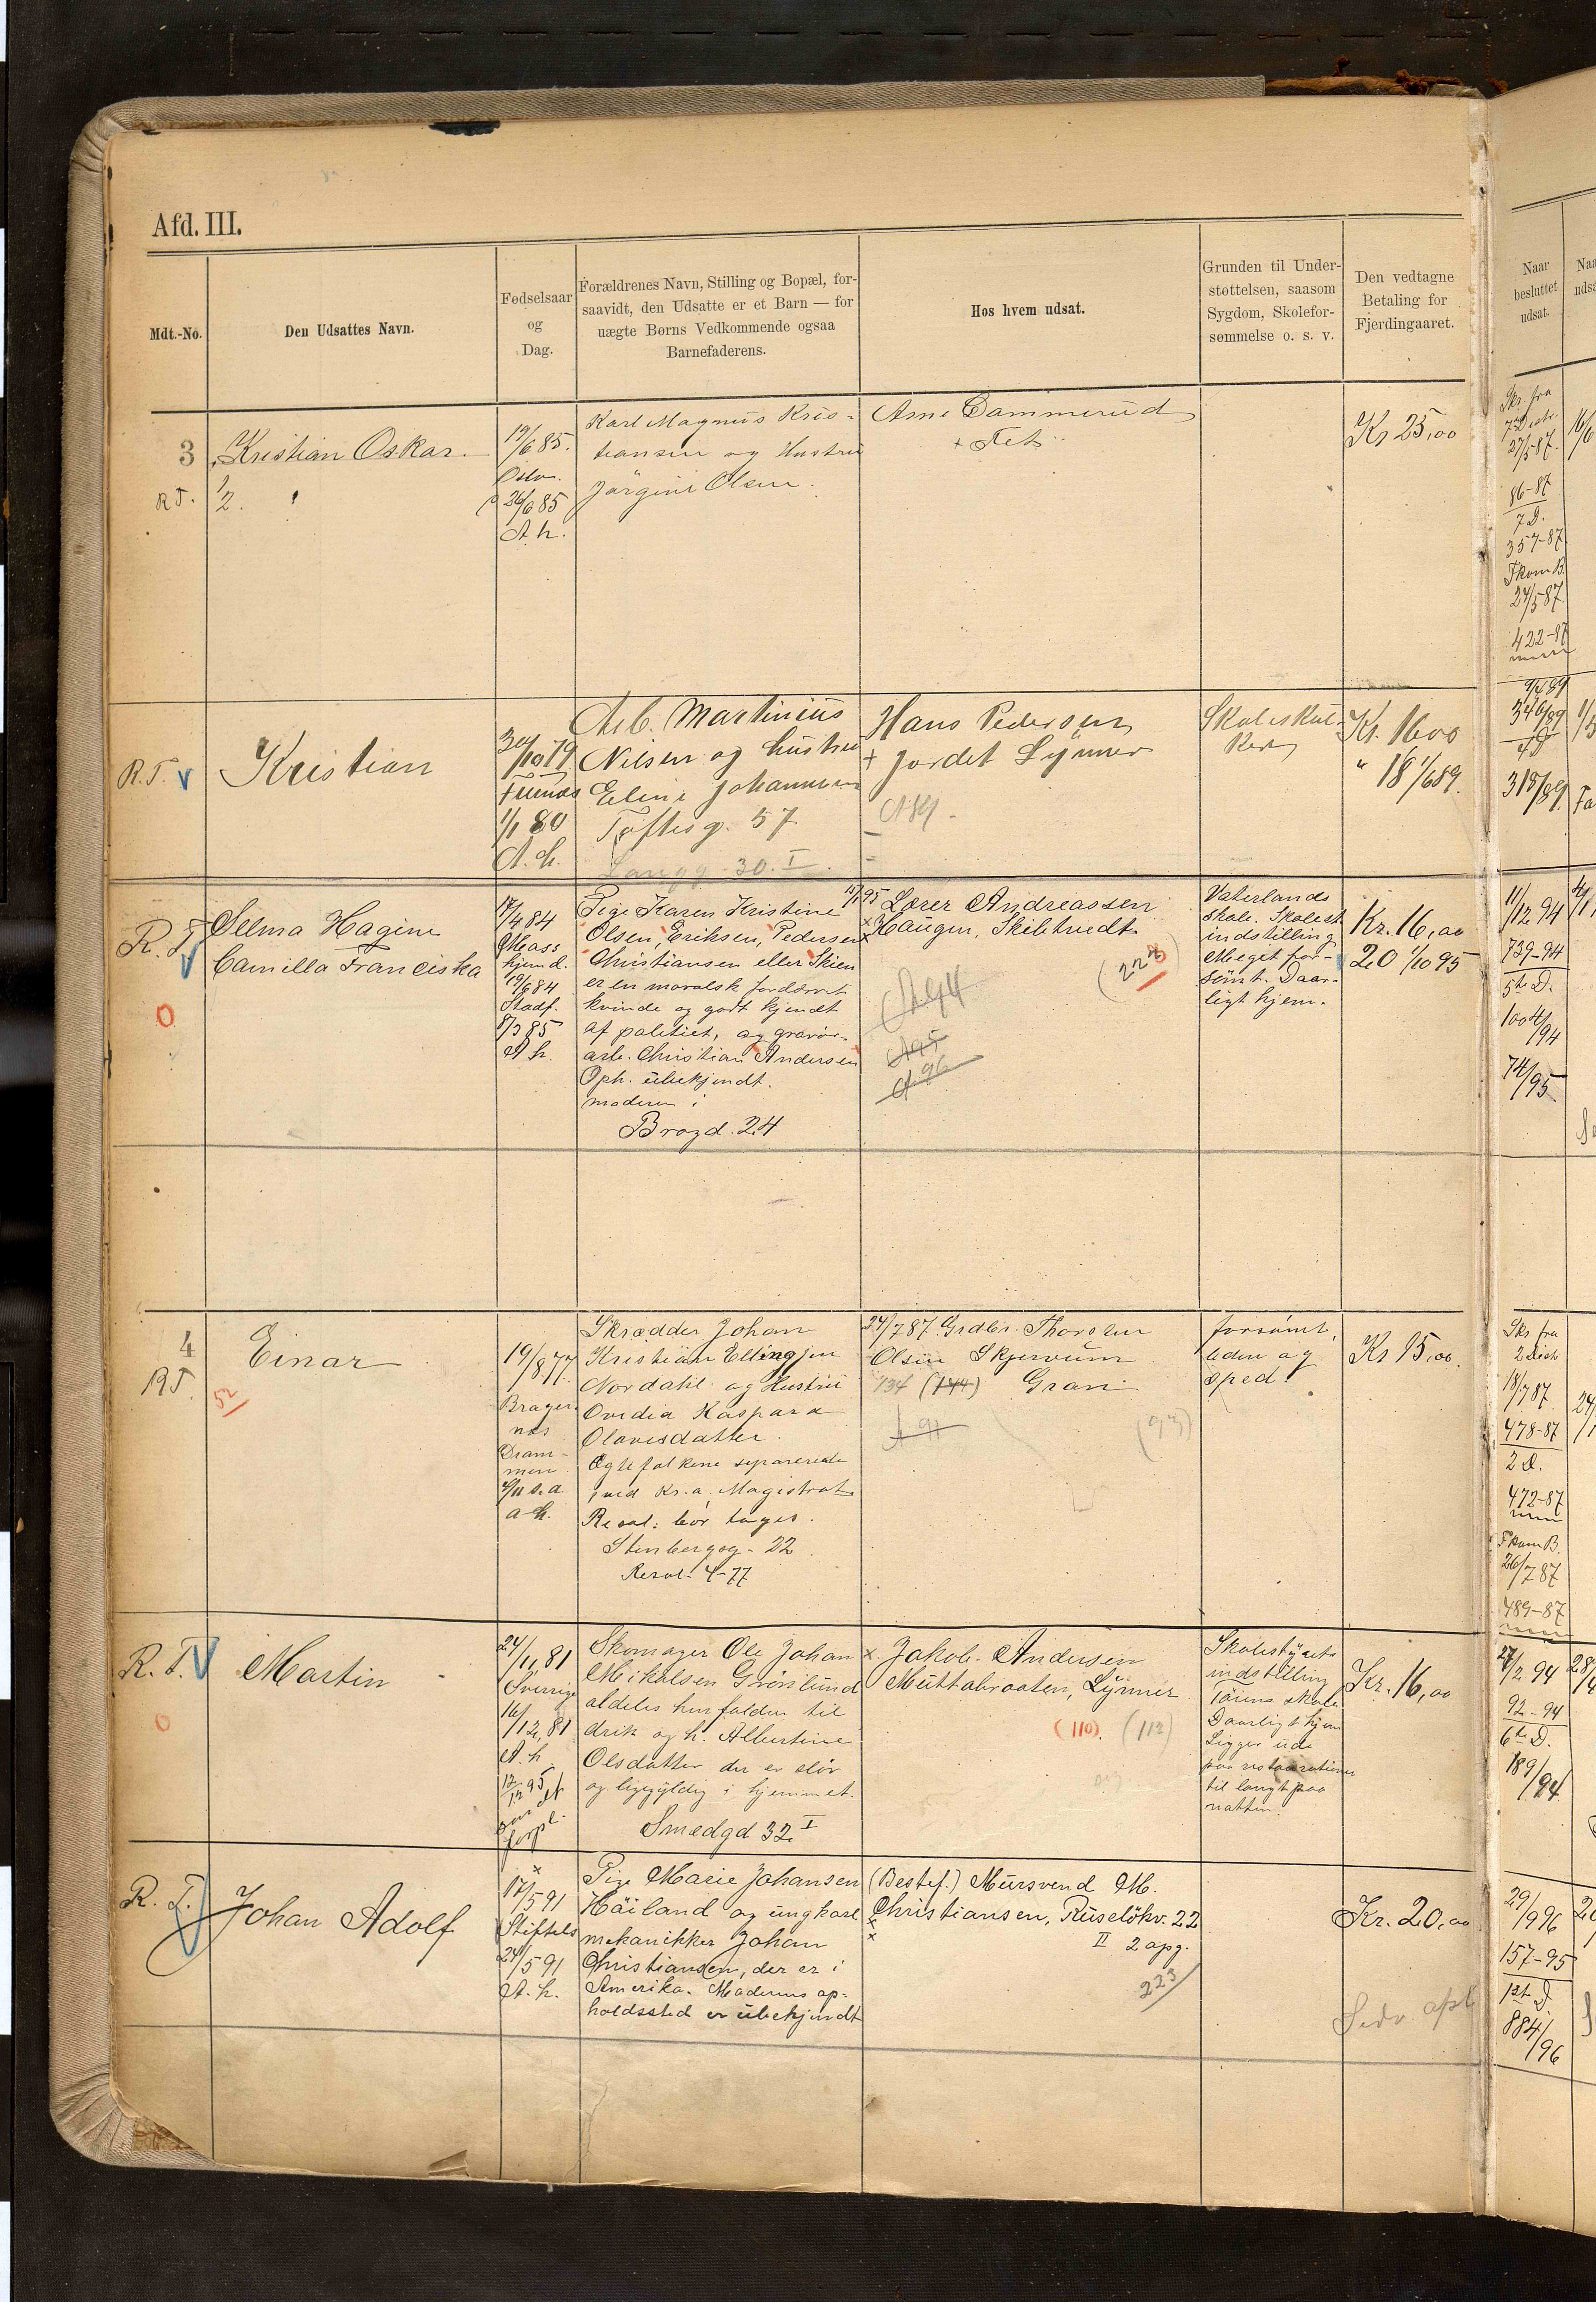 Afd. III.
Mdt.-No.
Den Udsattes Navn.
Fødselsaar
og
Dag.
Forældrenes Navn, Stilling og Bopæl, for-
saavidt, den Udsatte er et Barn — for
uægte Børns Vedkommende ogsaa
Barnefaderens.
Hos hvem udsat.
Grunden til Under-
støttelsen, saasom
Sygdom, Skolefor-
sømmelse o. s. v.
Den vedtagne
Betaling for
Fjerdingaaret.
Naar
besluttet
udsat.
3
R T.
Kristian Oskar.
1/2.
19/6 85.
Oslo.
26/6 85
A. h.
Karl Magnus Kris-
tiansen og Hustru
Jörgine Olsen.
Arne Dammerud
+ Fet
Kr 25,00
Skr. fra
7 Distr.
27/5-87.
86-87
7 D.
357-87
Fkom B.
24/5 87
422-87
R. T. v
Kristian
30/10 79
1/1 80
A. h.
Arb. Martinius
Nilsen og hustru
Eline Johannesen
Toftesg. 57
Langg. 30. I
Hans Pedersen
+ Jordet Lynner
A 89.
Kr. 16 00
" 18 1/6 89.
346/89
4 D
318/89
R. T. v
O
Selma Hagine
Camilla Franciska
17/4 84
19/6 84
Stadf.
8/3 85
A h.
Pige Karen Kristine
Olsen, Eriksen, Pedersen
Christiansen eller Skien
er en moralsk fordærvet
kvinde og godt kjendt
af politiet, og gravör-
arb. Christian Andersen
Oph. ubekjendt.
moderen i
Brogd. 24
15/1 95 Lærer Andreassen
x Haugen, Skibtvedt
(228)
A 94
A 95
A 96
Vaterlands
skole. Skolest.
indstilling
Meget for-
sömt. Daar-
ligt hjem.
Kr. 16,00
20 1/10 95
11/12 94
739-94
5te D.
1004/94
74/95
4
R T.
52
Einar
19/8 77.
Brager-
nes
Dram-
men
a h.
Skrædder Johan
Kristian Ellingsen
Nordahl og Hustru
Ovidia Kaspara
Olavesdatter.
Ægtefolkene separerede
ved Kr.a Magistrat
Resol: bör tages.
Stenbergsg. 22
Resol. 4-77
24/7 87. Grdbr. Thorsten
Olsen Skjervum
134 (144) Gran
A 91
(93)
forsömt,
liden og
sped.
Kr 15,00.
Skr fra
2 Distr
18/7 87
478-87
2 D.
472-87
Fkom B.
26/7 87
489-87
R. T. V
O
Martin
24/11 81
Sverrige
16/12 81
A. h.
12/12 95
Skomager Ole Johan
Mikalsen Grönlund
aldeles henfalden til
drik og h. Albertine
Olsdatter der er slöv
og ligegyldig i hjemmet.
Smedgd 32 I
x. Jakob Andersen
Muttabraaten, Lynner
(110). (112)
Skolestyrets
indstilling
Töiens skole
Daarligt hjem
Ligger ude
paa restaurationer
til langt paa
natten.
Kr. 16,00
27/2 94
92-94
6te D.
189/94
R. T. V
Johan Adolf
x
17/5 91
Stiftels
24/5 91
A. h.
Pige Marie Johansen
Häiland og ungkarl
mekanikker Johan
Christiansen, der er i
Amerika. Moderens op-
holdssted er ubekjendt
(Bestef.) Mursvend M.
Christiansen, Ruselökv. 22
II 2 opg.
223
Kr. 20,00
Sedv. opl
29/9 96
157-95
1st D.
884/96